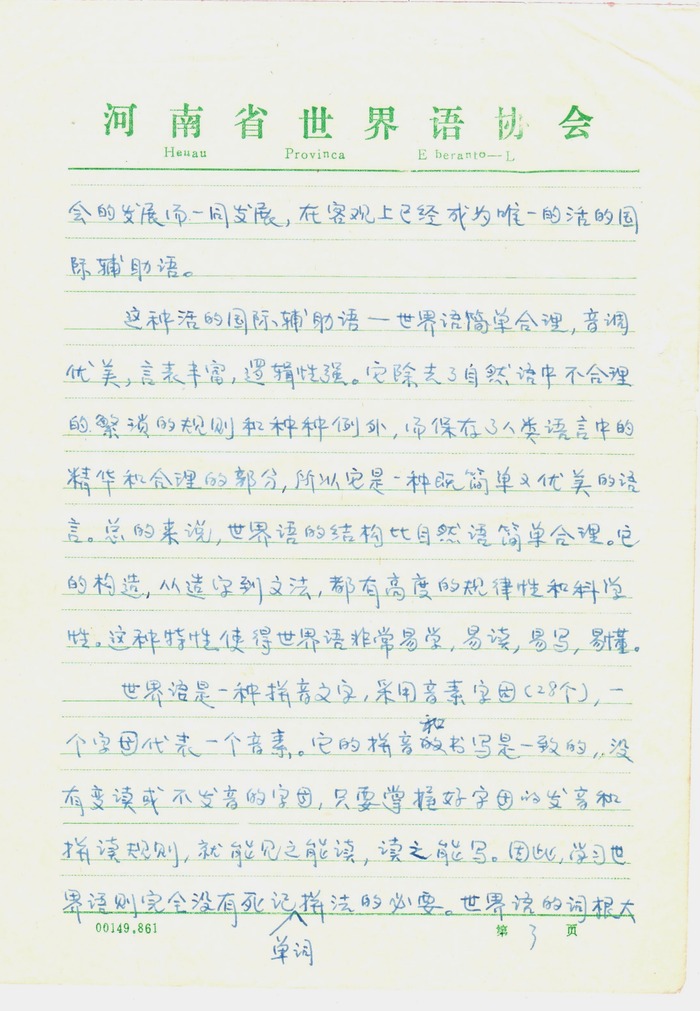 河南省世界语协会
Henan Provinca E beranto—L
会的发展而一同发展，在客观上已经成为唯一的活的国
际辅助语。
这种活的国际辅助语一世界语简单合理，音调
优美，言表丰富，逻辑性强。它除去了自然语中不合理
的繁琐的规则和种种例外，而保存了人类语言中的
精华和合理的部分，所以它是一种既简单又优美的语
言。总的来说，世界语的结构比自然语简单合理。它
的构造，从造字到文法，都有高度的规律性和科学
性。这种特性使得世界语非常易学，易读，易写，易懂。
世界语是一种拼音文字，采用音素字母（28个），一
个字母代表一个音素。它的拼音和书写是一致的，没
有变读或不发音的字母，只要掌握好字母的发音和
拼读规则，就能见之能读，读之能写。因此，学习世
界语则完全没有死记单词拼法的必要。世界语的词根大
00149.861 第 3 页